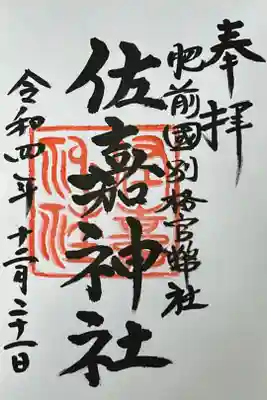 奉拝
肥前國別格官幣社
佐嘉神社
令和四年十二月二十一日